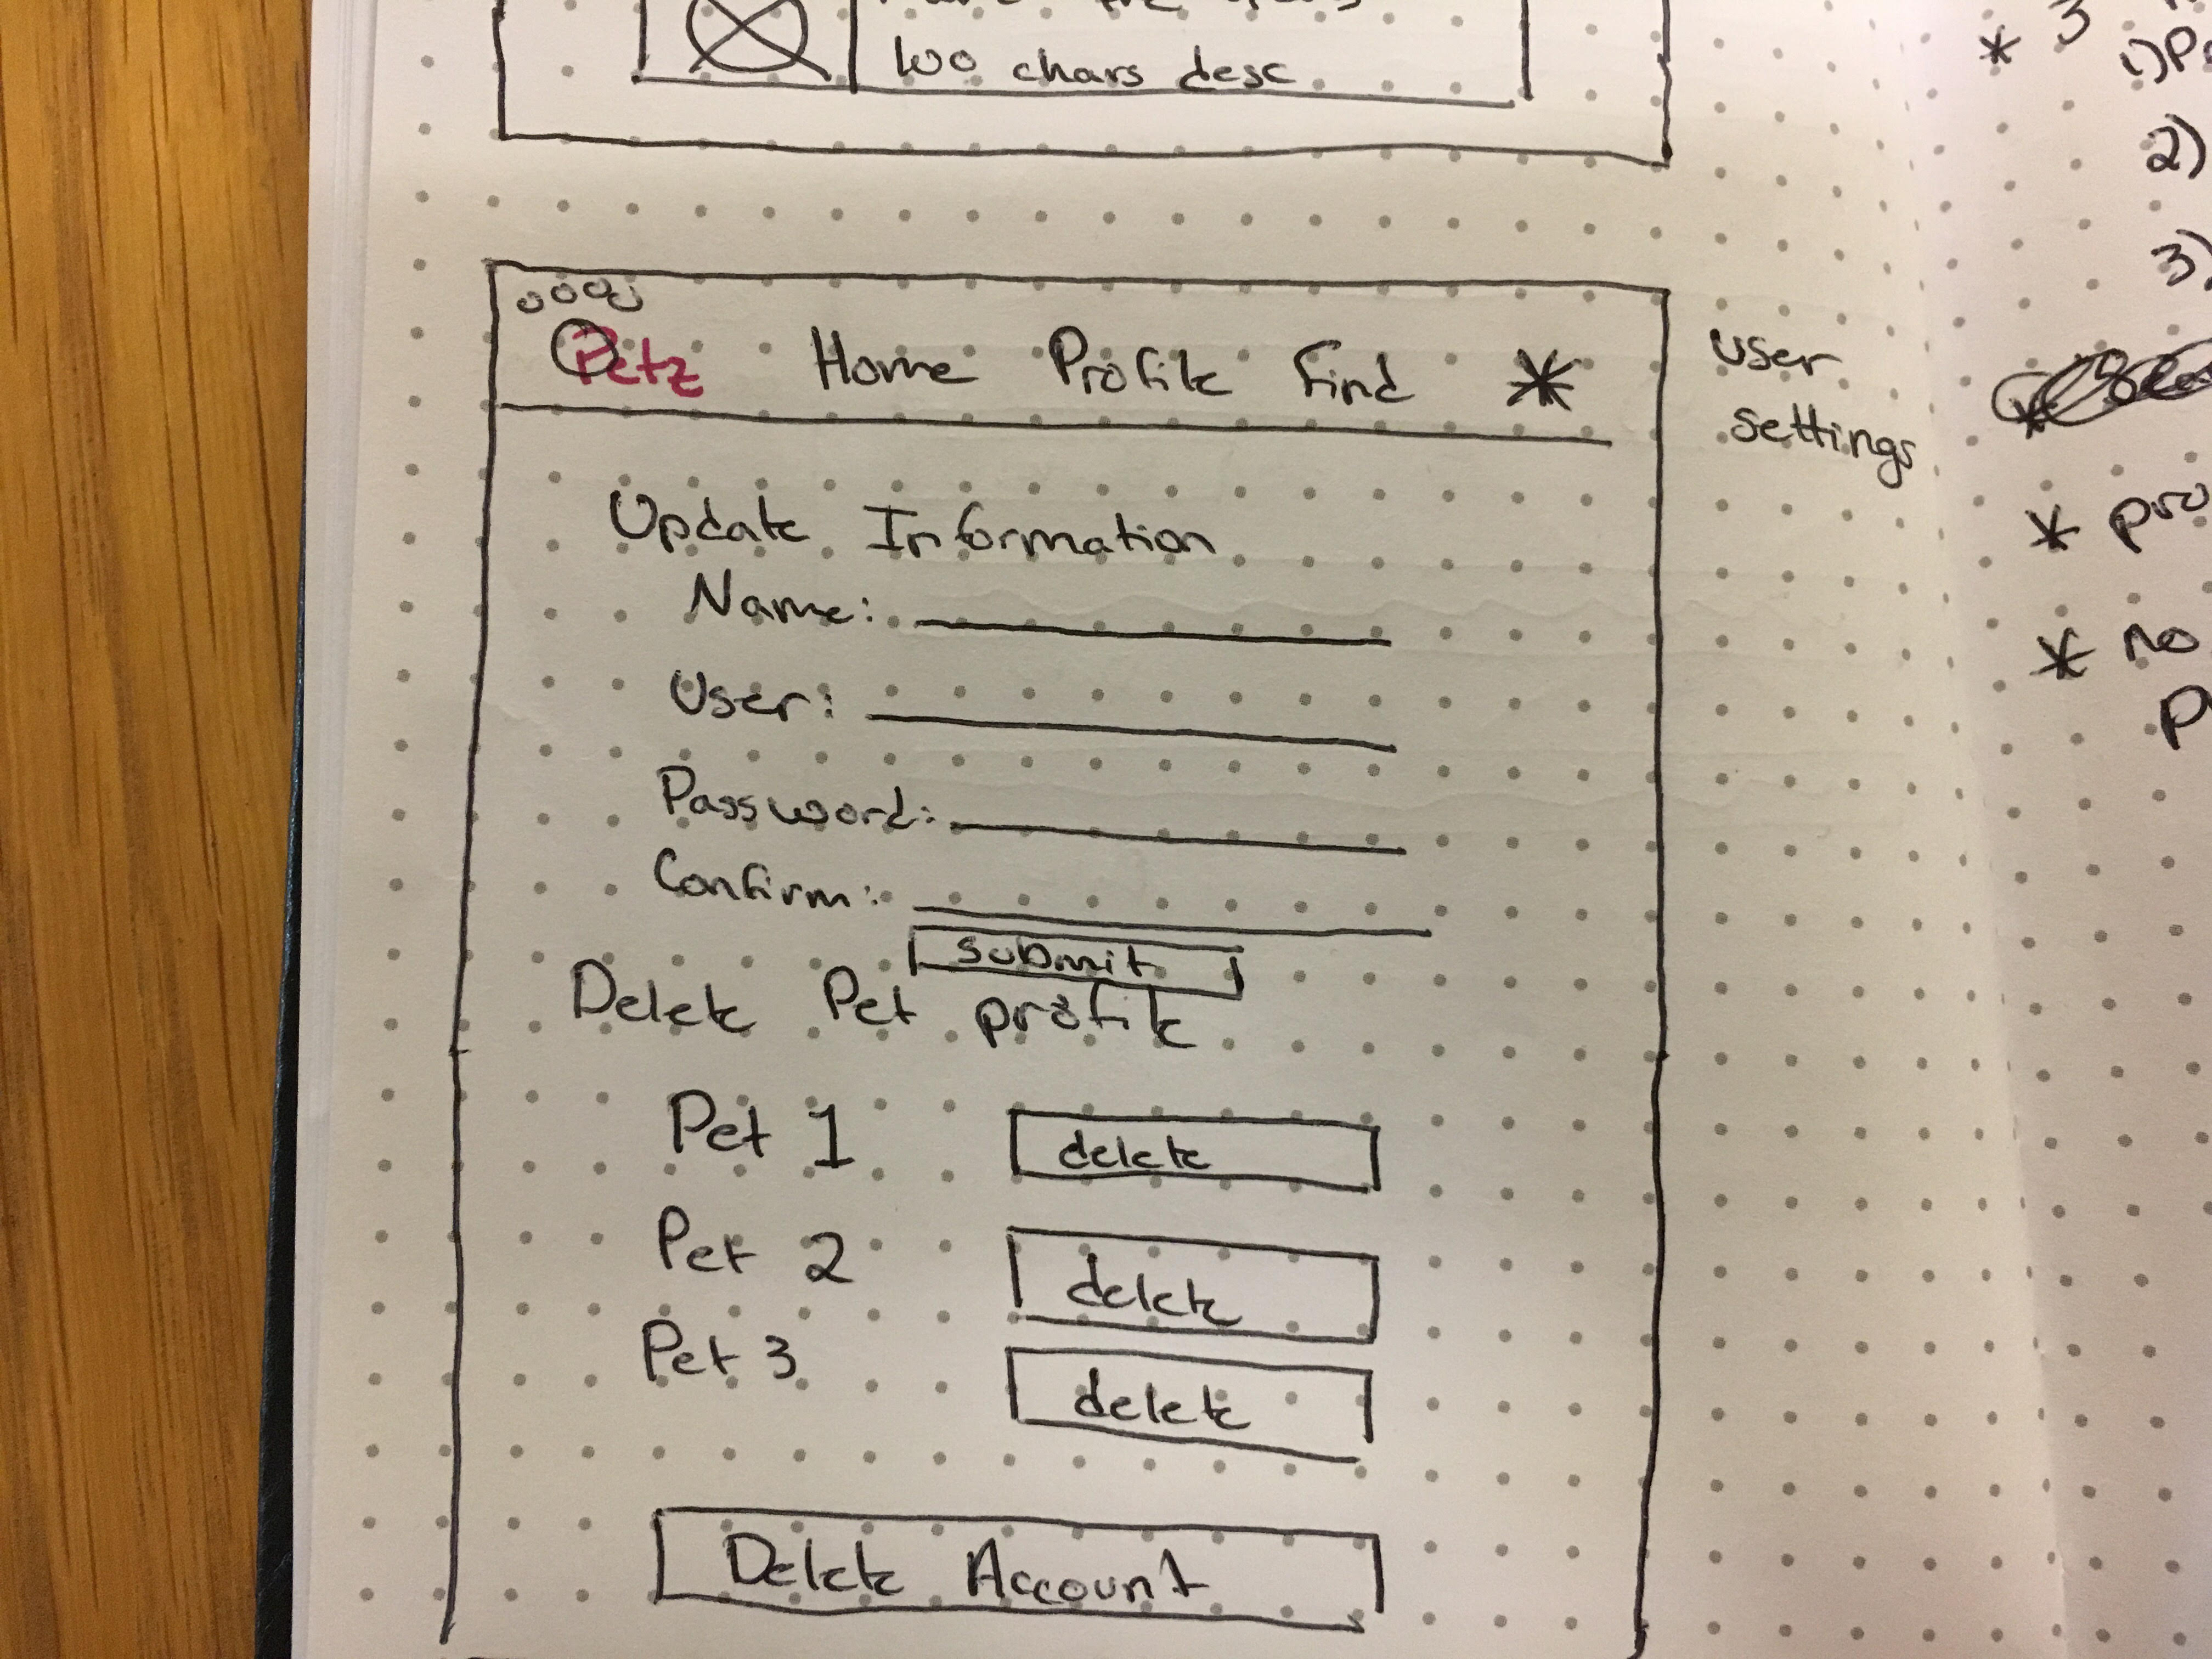 100 chars desc
Petz Home Profile Find *
user
settings
Update Information
Name:
User:
Password:
Confirm:
submit
Delete Pet profile
Pet 1 delete
Pet 2 delete
Pet 3 delete
Delete Account
* 3
1)
2)
3)
*
* no